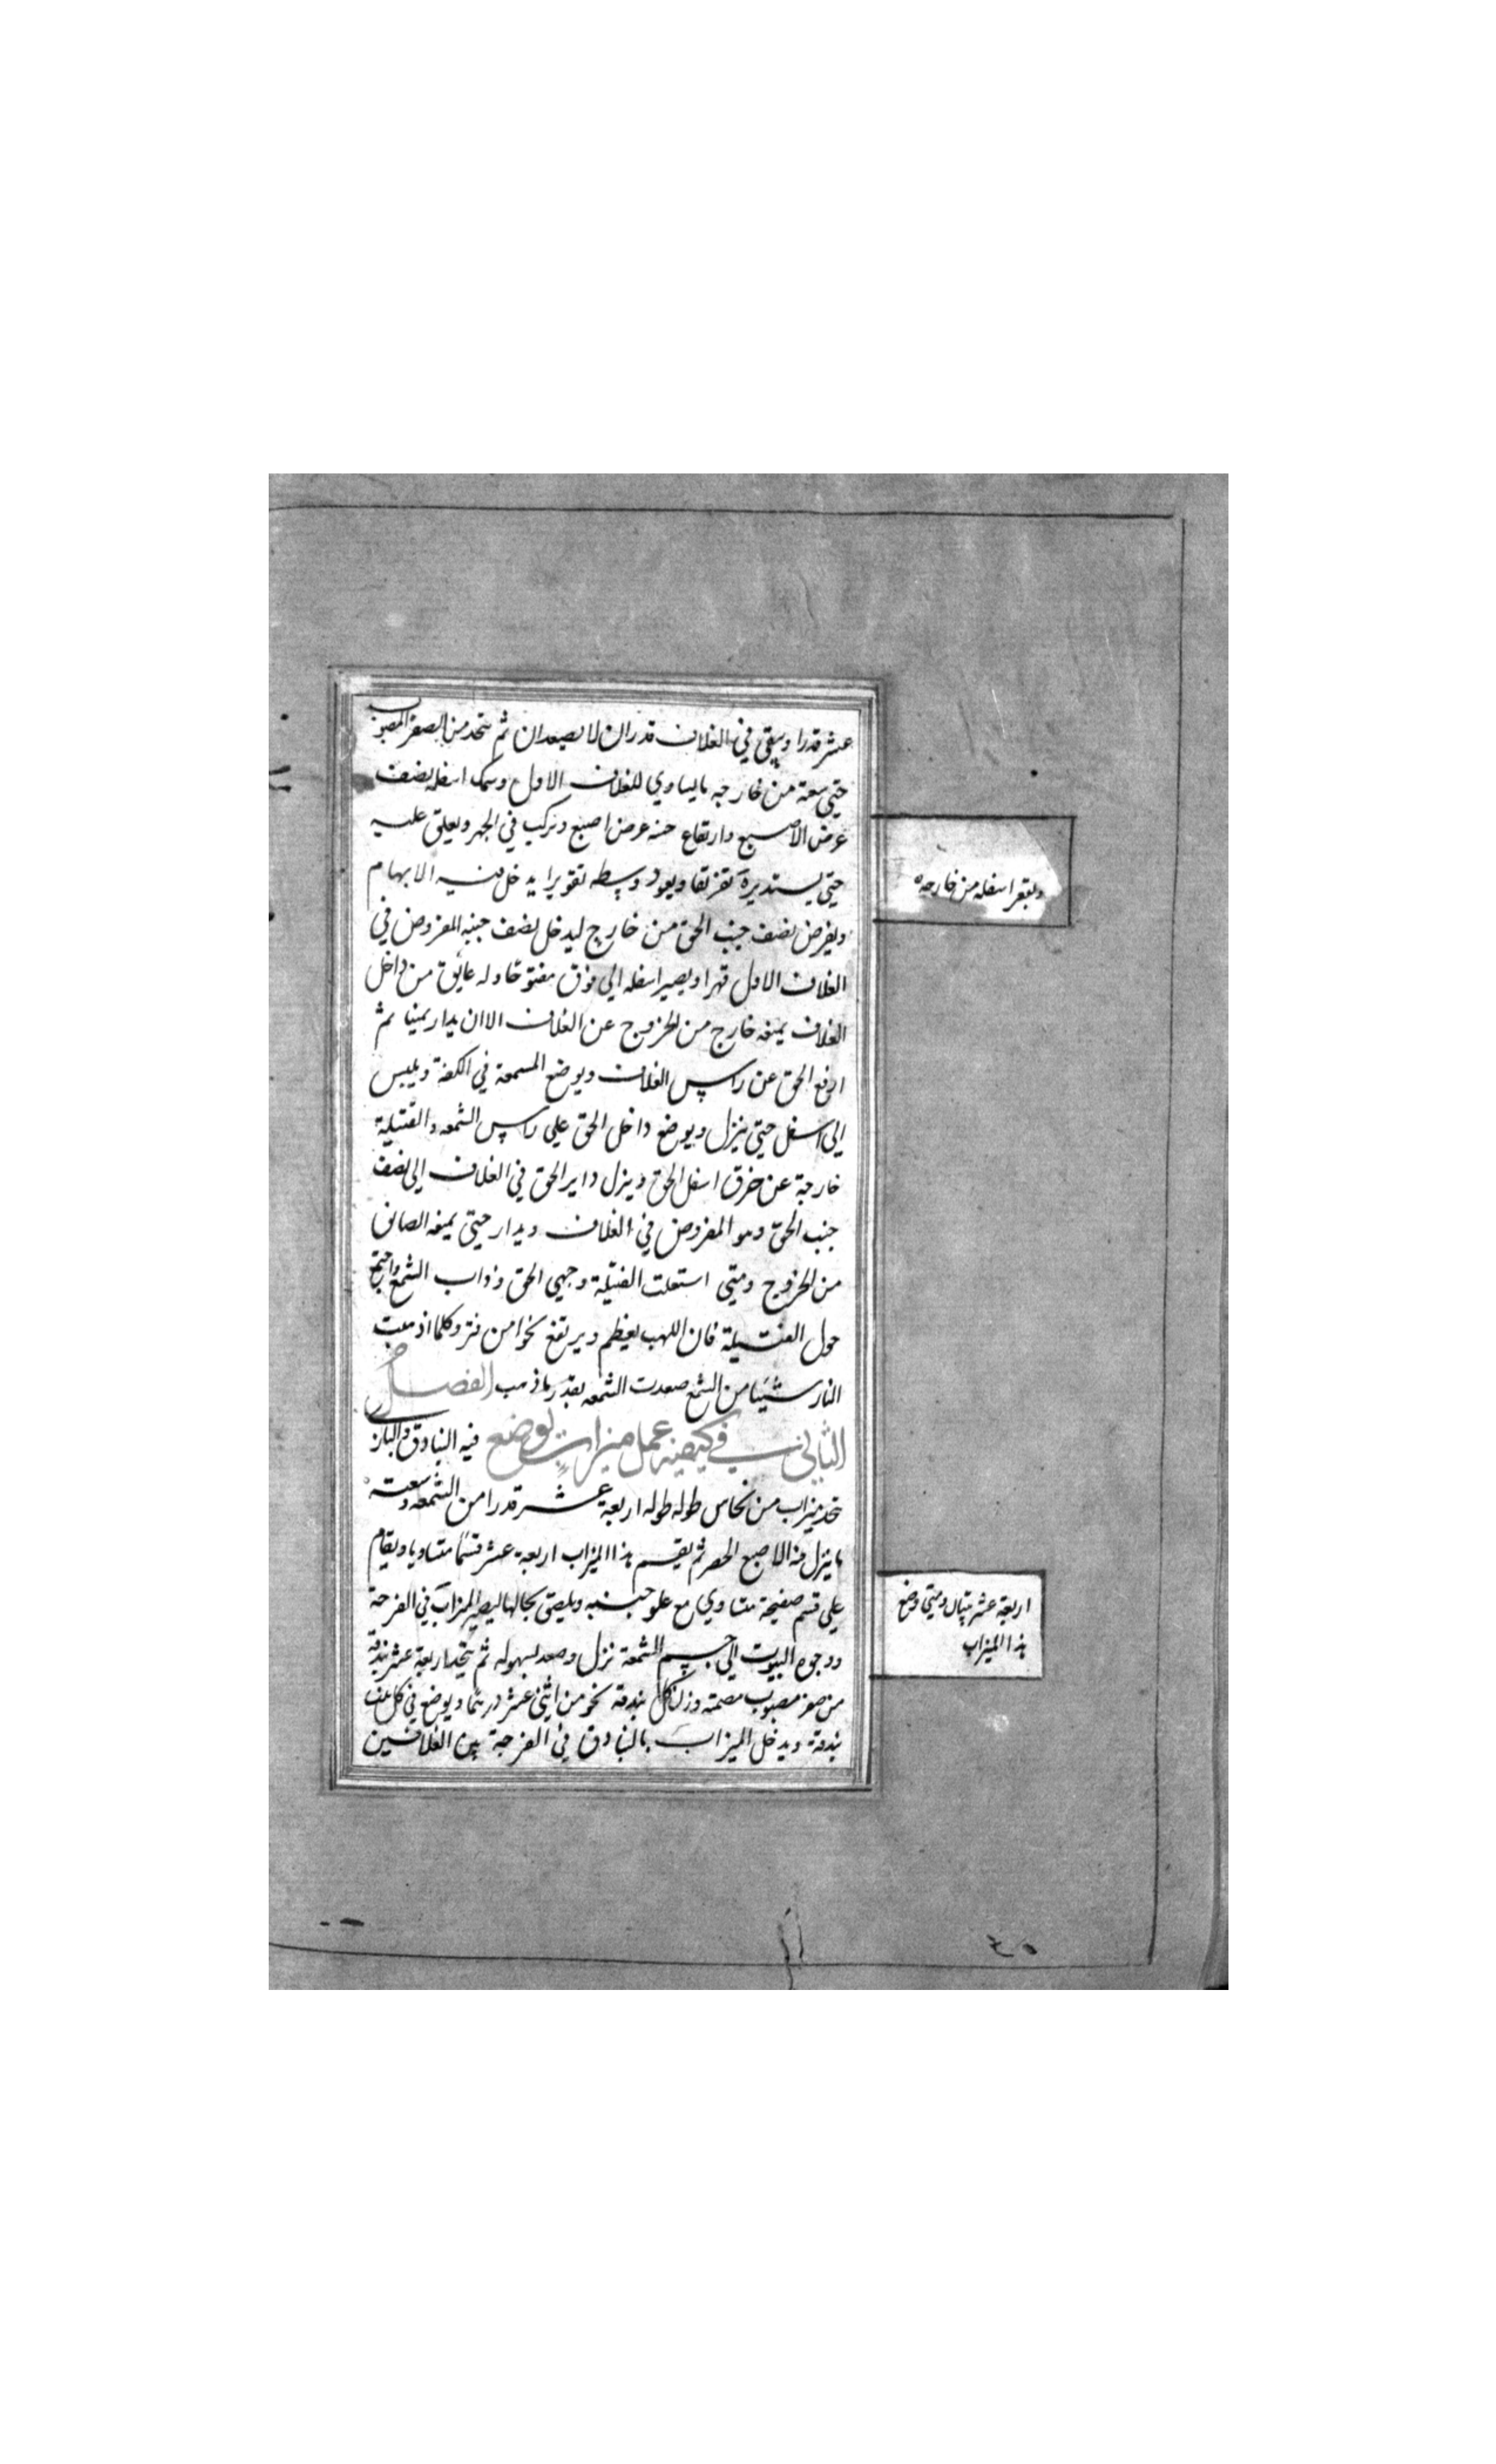 عشر قدرا ويبقى في الغلاف قدران لا يصعدان ثم يتخذ من الصفر المصبوب
حتى سعة من خارجه ما يساوي للغلاف الاول وسمك اسفله نصف
عرض الاصبع وارتفاع جنبه عرض اصبع ويركب في الجهر ويعلق عليه
حتى يستديرة ويعود وسطه تقويرا يدخل فيه الابهام
ويفرض نصف جنب الحق من خارج ليدخل نصف جنبه المفروض في
الغلاف الاول قهرا ويصير اسفله الى فوق مفتوحا وله عايق من داخل
الغلاف يمنعه خارج من الخروج عن الغلاف الا ان يدار يمنيا ثم
ارفع الحق عن راس الغلاف ويوضع المسمعة في الكفة ويلبس
الى اسفل حتى ينزل ويوضع داخل الحق على راس الشمعه والفتيلة
خارجة عن خرق اسفل الحق وينزل داير الحق في الغلاف الى نصف
جنب الحق وهو المفروض في الغلاف ويدار حتى يمنعه العايق
من الخروج ومتى استعلت الفتيلة وجهي الحق وذاب الشمع واجتمع
حول الفتيلة فان اللهب يعظم ويرتفع نحوا من فتر وكلما اذهبت
النار شيئا من الشمع صعدت الشمعه بقدر ما ذهب الفصل
الثاني في كيفية عمل ميزاب يوضع فيه البنادق والباز
تتخذ ميزاب من نحاس طوله طوله اربعة عشر قدرا من الشمعه وسعته
ما ينزل فيه الاصبع الخصر ثم يقسم هذا الميزاب اربعة عشر قسما متساويا ويقام
على قسم صفيحة متساوي مع علو جنبيه ويلصق بحالها ليصير الميزاب في الفرجة
ووجوه البيوت الى جسم الشمعة نزل وصعد بسهوله ثم يتخذ اربعة عشر بندقة
من صفر مصبوب مصمته وزن كل بندقة نحو من اثنى عشر درهما ويوضع في كل بيت
بندقة ويدخل الميزاب بالبنادق في الفرجة بين الغلافين
ويقعر اسفله من خارجه
اربعة عشر بيتا ومتى وضع
هذا الميزاب